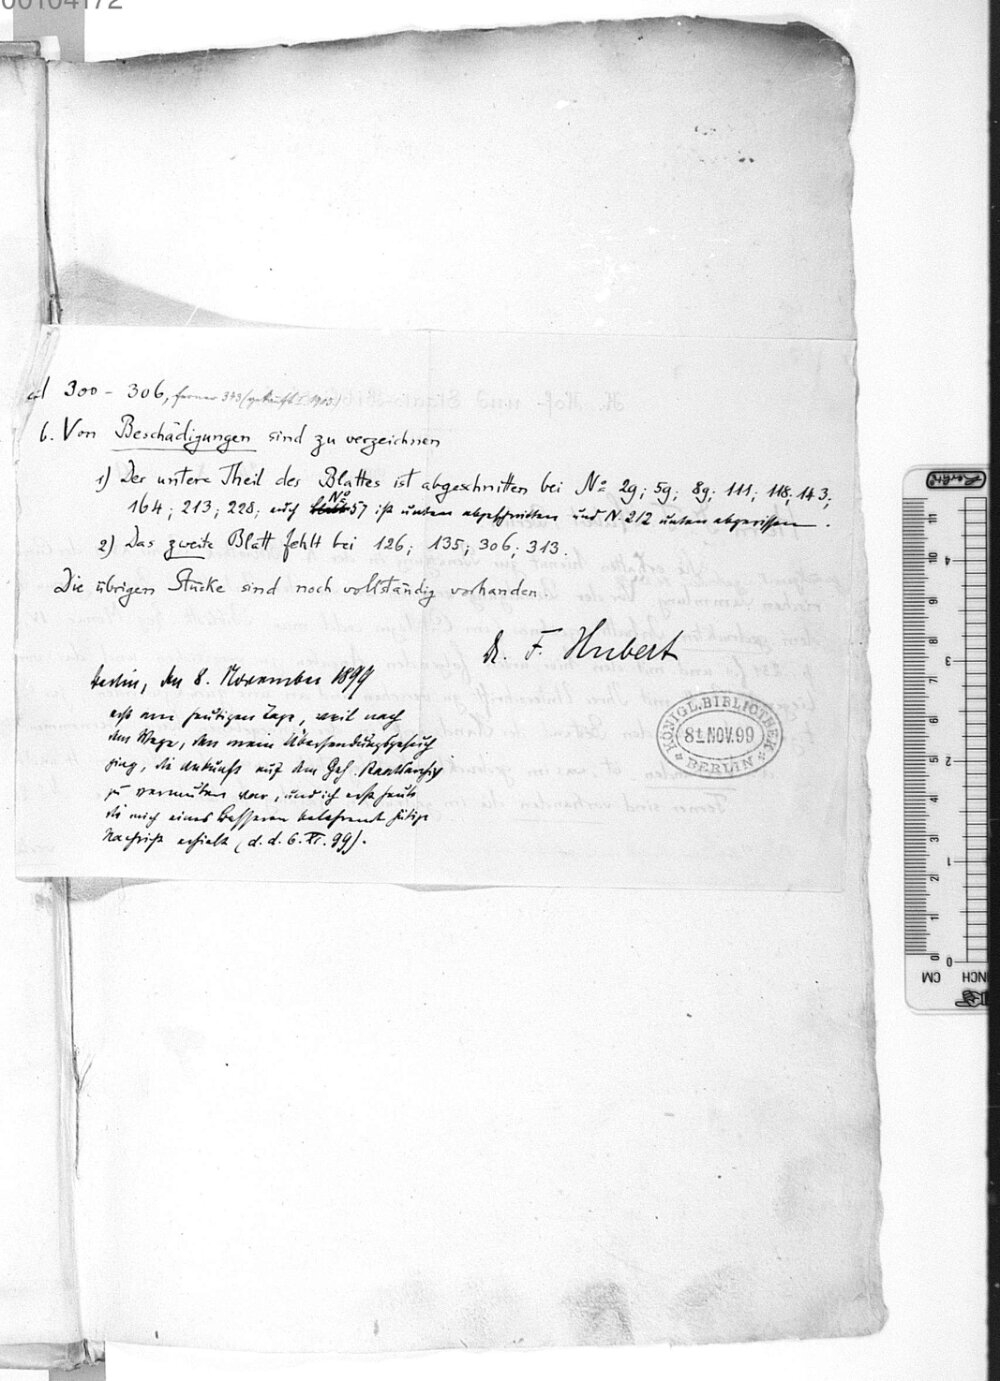 00104172
d 300 - 306, ferner 343 (gekauft 1905)
6. Von Beschädigungen sind zu verzeichnen
1) Der untere Theil des Blattes ist abgeschnitten bei No 29; 59; 89; 111; 118; 143;
164; 213; 228; auch No 57 ist unten abgeschnitten und N. 212 unten abgerissen.
2) Das zweite Blatt fehlt bei 126; 135; 306; 313.
Die übrigen Stücke sind noch vollständig vorhanden.
Dr. F. Hubert
Berlin, den 8. November 1899
erst am heutigen Tage, weil nach
dem Wege, den mein Übersendungsgesuch
ging, die Ankunft auf dem Geh. Staatsarchiv
zu vermuten war, und ich erst heute
die mich eines Besseren belehrende gütige
Nachricht erhielt (d. d. 6. XI. 99).
KÖNIGL. BIBLIOTHEK
8 NOV. 99
BERLIN